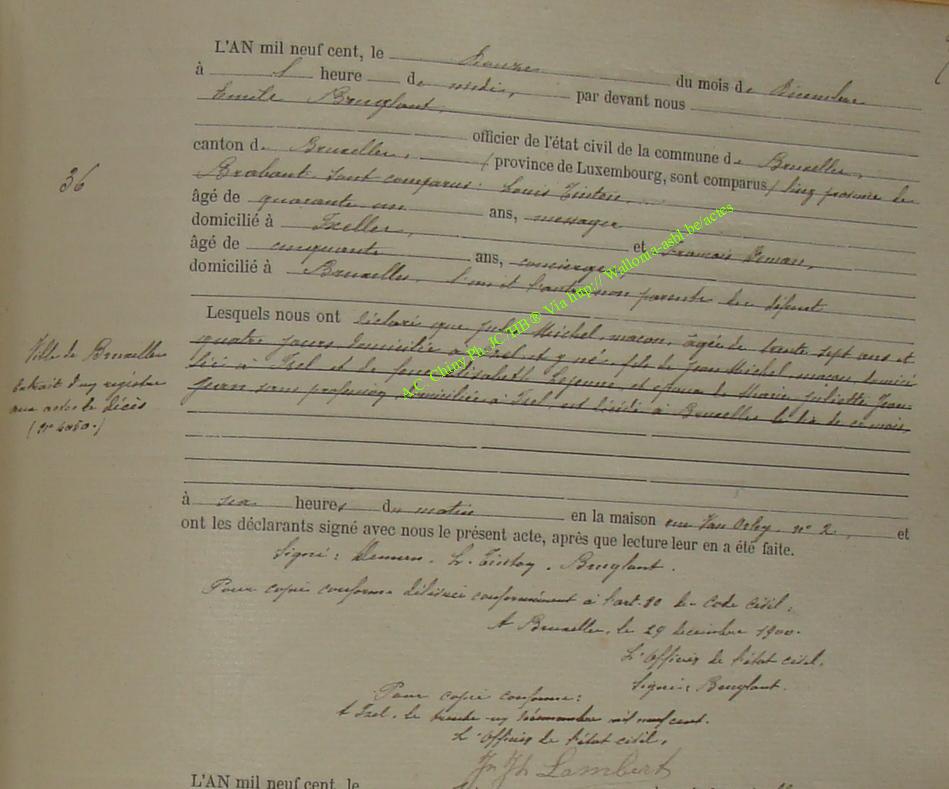 L'AN mil neuf cent, le onze du mois de décembre
à 1 heure de midi, par devant nous
Emile Bruylant,
officier de l'état civil de la commune de Bruxelles,
canton de Bruxelles, province de Luxembourg, sont comparus
36
Brabant sont comparus: Louis
âgé de quarante un ans, messager
domicilié à Ixelles, et François
âgé de cinquante ans, concierge,
domicilié à Bruxelles, l'un et l'autre non parents du défunt
Lesquels nous ont déclaré que Jules Michel, maçon, âgé de trente sept ans et
quatre jours domicilié à Izel et y né, fils de Jean Michel maçon domici
lié à Izel et de feue Elisabeth Lejeune et époux de Marie Juliette Jean-
jean sans profession, domiciliée à Izel, est décédé à Bruxelles le dix de ce mois,
Ville de Bruxelles
Extrait d'un registre
aux actes de décès
à six heures du matin en la maison rue Van Orley n° 2, et
ont les déclarants signé avec nous le présent acte, après que lecture leur en a été faite.
Signé: L. Bruylant.
Pour copie conforme délivrée conformément à l'art. 80 du Code civil,
A Bruxelles, le 29 décembre 1900.
L'Officier de l'état civil,
Signé: Bruylant.
Pour copie conforme:
A Izel, le trente un décembre mil neuf cent.
L'Officier de l'état civil,
Lambert
L'AN mil neuf cent, le
A.C. Chiny Ph. JC HB® Via http://Wallonia-asbl.be/actes